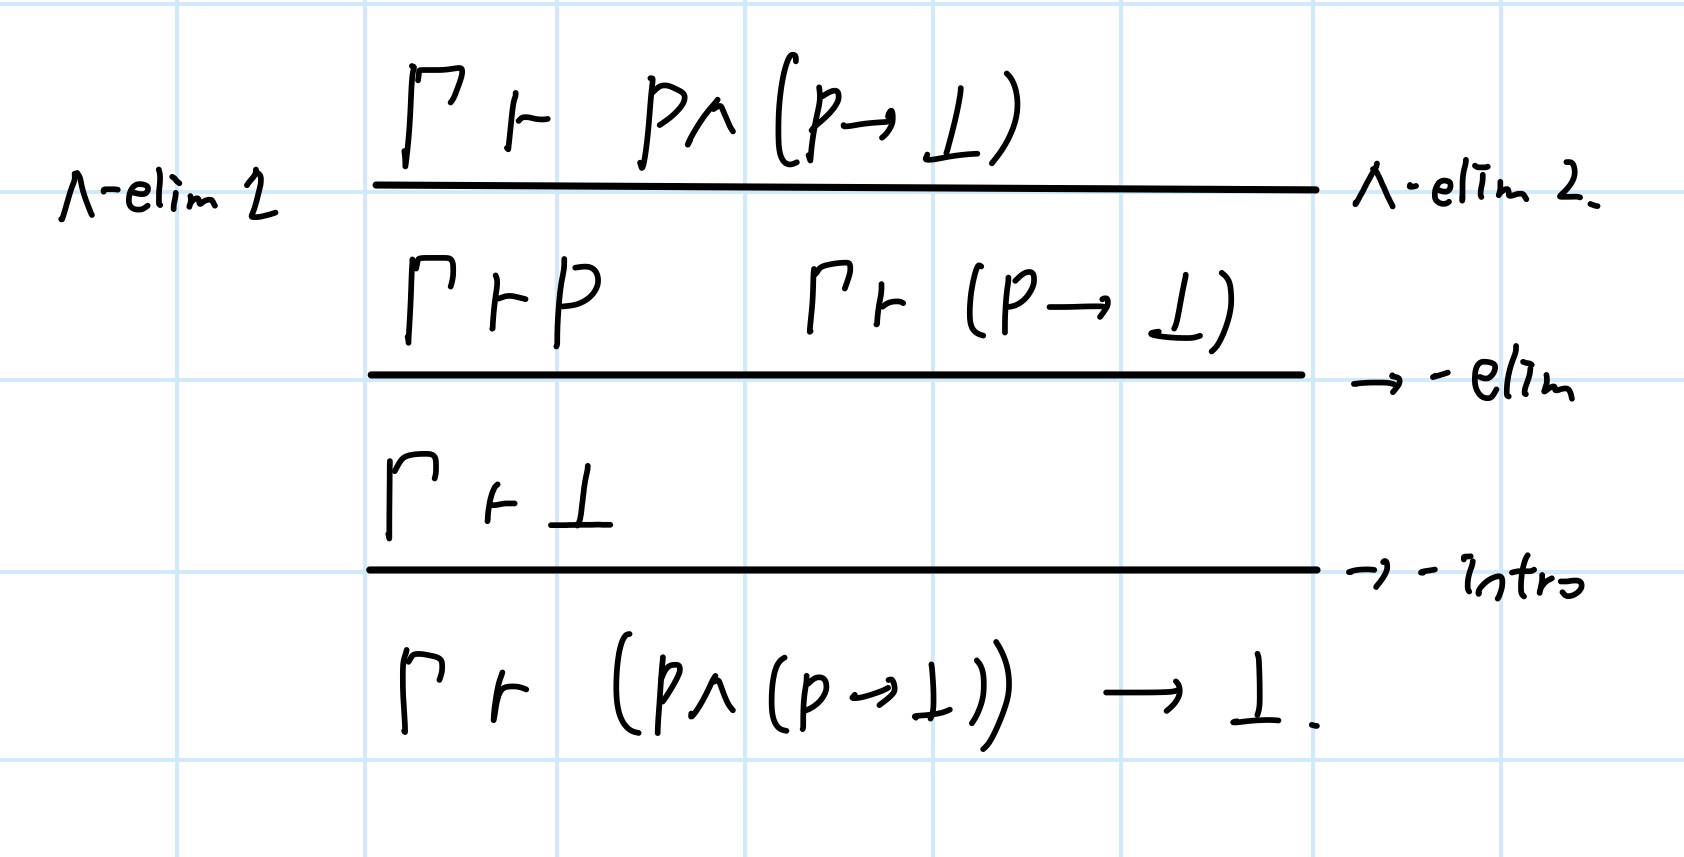 Γ ⊢ p∧(p→⊥)
∧-elim 1 ∧-elim 2.
Γ ⊢ p Γ ⊢ (p→⊥)
→-elim
Γ ⊢ ⊥
→-intro
Γ ⊢ (p∧(p→⊥)) → ⊥.